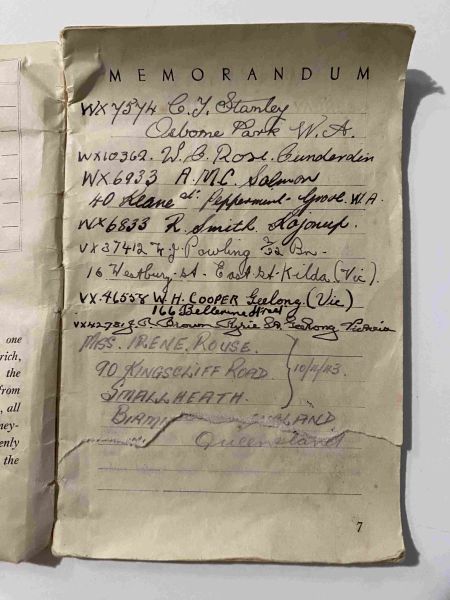 MEMORANDUM
WX7574 C. J. Stanley
Osborne Park W. A.
WX10362. W. B. Rose. Cunderdin
WX6933 A. M C. Salmon
40 Keane St. Peppermint Grove W.A.
WX6833 R. Smith. Kojonup.
VX37412 J. Powling Bn.
16 Westbury St - East St Kilda (Vic).
VX.46558 W. H. COOPER Geelong. (Vic)
166 Bellerine Street
VX42781 Brown Ryrie St. Geelong Victoria
MISS. IRENE. ROUSE.
90 KINGSCLIFF ROAD
10/4/43.
SMALLHEATH.
BIRMI
Queensland
one
rich,
the
from
, all
ney-
enly
the
7